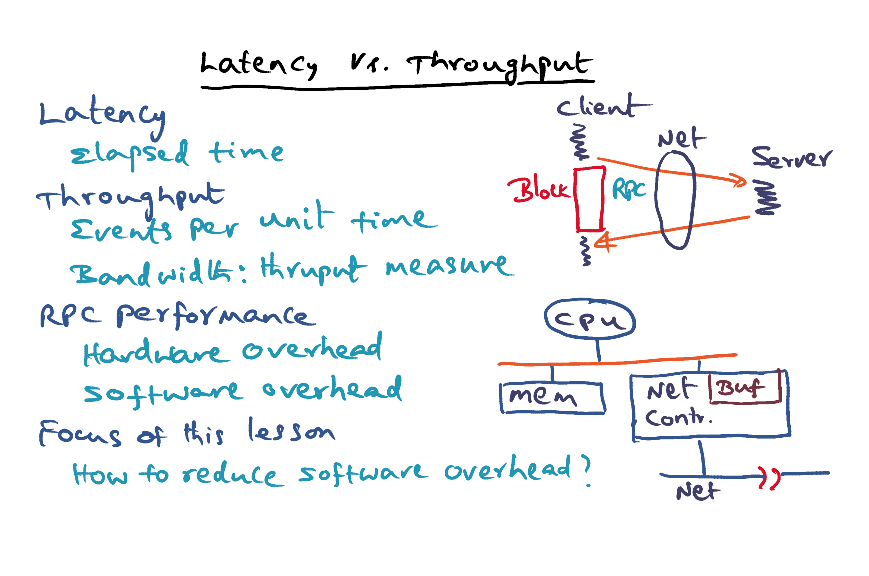 Latency Vs. Throughput
Latency
Elapsed time
Throughput
Events per unit time
Bandwidth: thruput measure
RPC performance
Hardware overhead
Software overhead
Focus of this lesson
How to reduce software overhead?
Client
Net
Server
Block
RPC
CPU
mem
Net
Buf
Contr.
Net